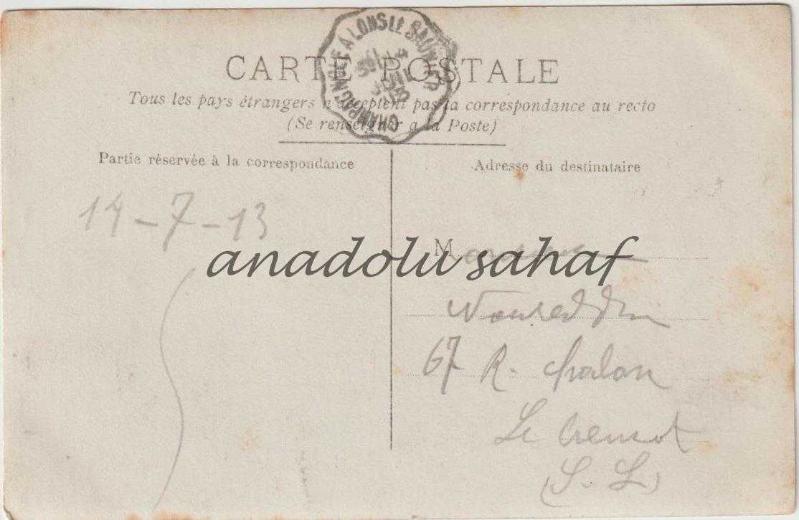 CHAMPAGNOLE A LONS LE SAUNIER
CARTE POSTALE
Tous les pays étrangers n'acceptent pas la correspondance au recto
(Se renseigner à la Poste)
Partie réservée à la correspondance
Adresse du destinataire
14-7-13
M
anadolu sahaf
Noureddin
67 R. Chalon
Le Creusot
(S. L)